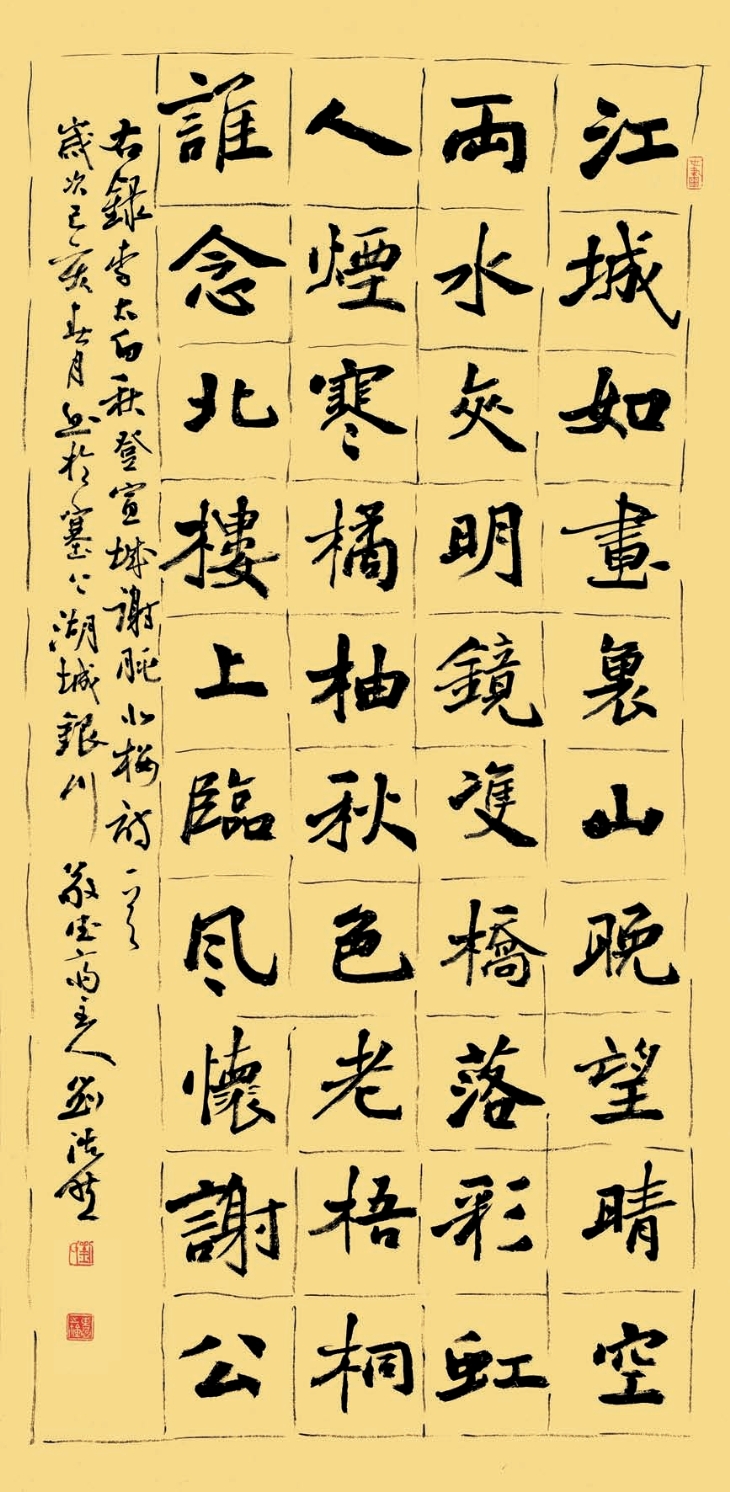 江城如畫裏山晚望晴空
兩水夾明鏡雙橋落彩虹
人煙寒橘柚秋色老梧桐
誰念北樓上臨风懷謝公
右錄李太白秋登宣城謝朓北楼詩一首
歲次己亥春月書於塞上湖城銀川 斋主人 劉浩然